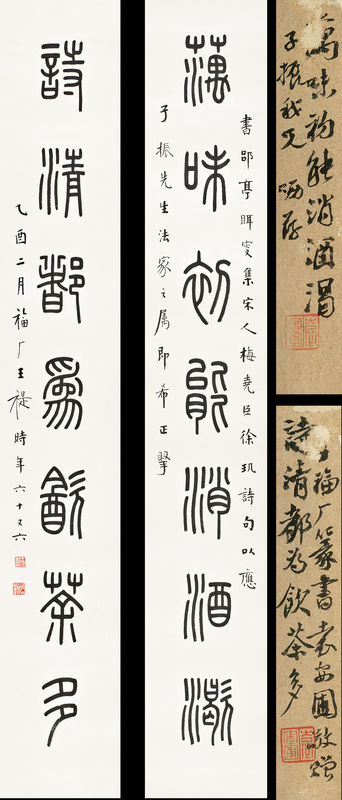 藕味初能消酒渴
書郘亭眲叟集宋人梅堯臣徐璣詩句以應
子振先生法家之属即希正擘
詩清都爲㱃茶多
乙酉二月福厂王禔時年六十又六
藕味初能消酒渴
子振我兄哂存
王福厂篆書袁安圃敬贈
詩清都為飲茶多